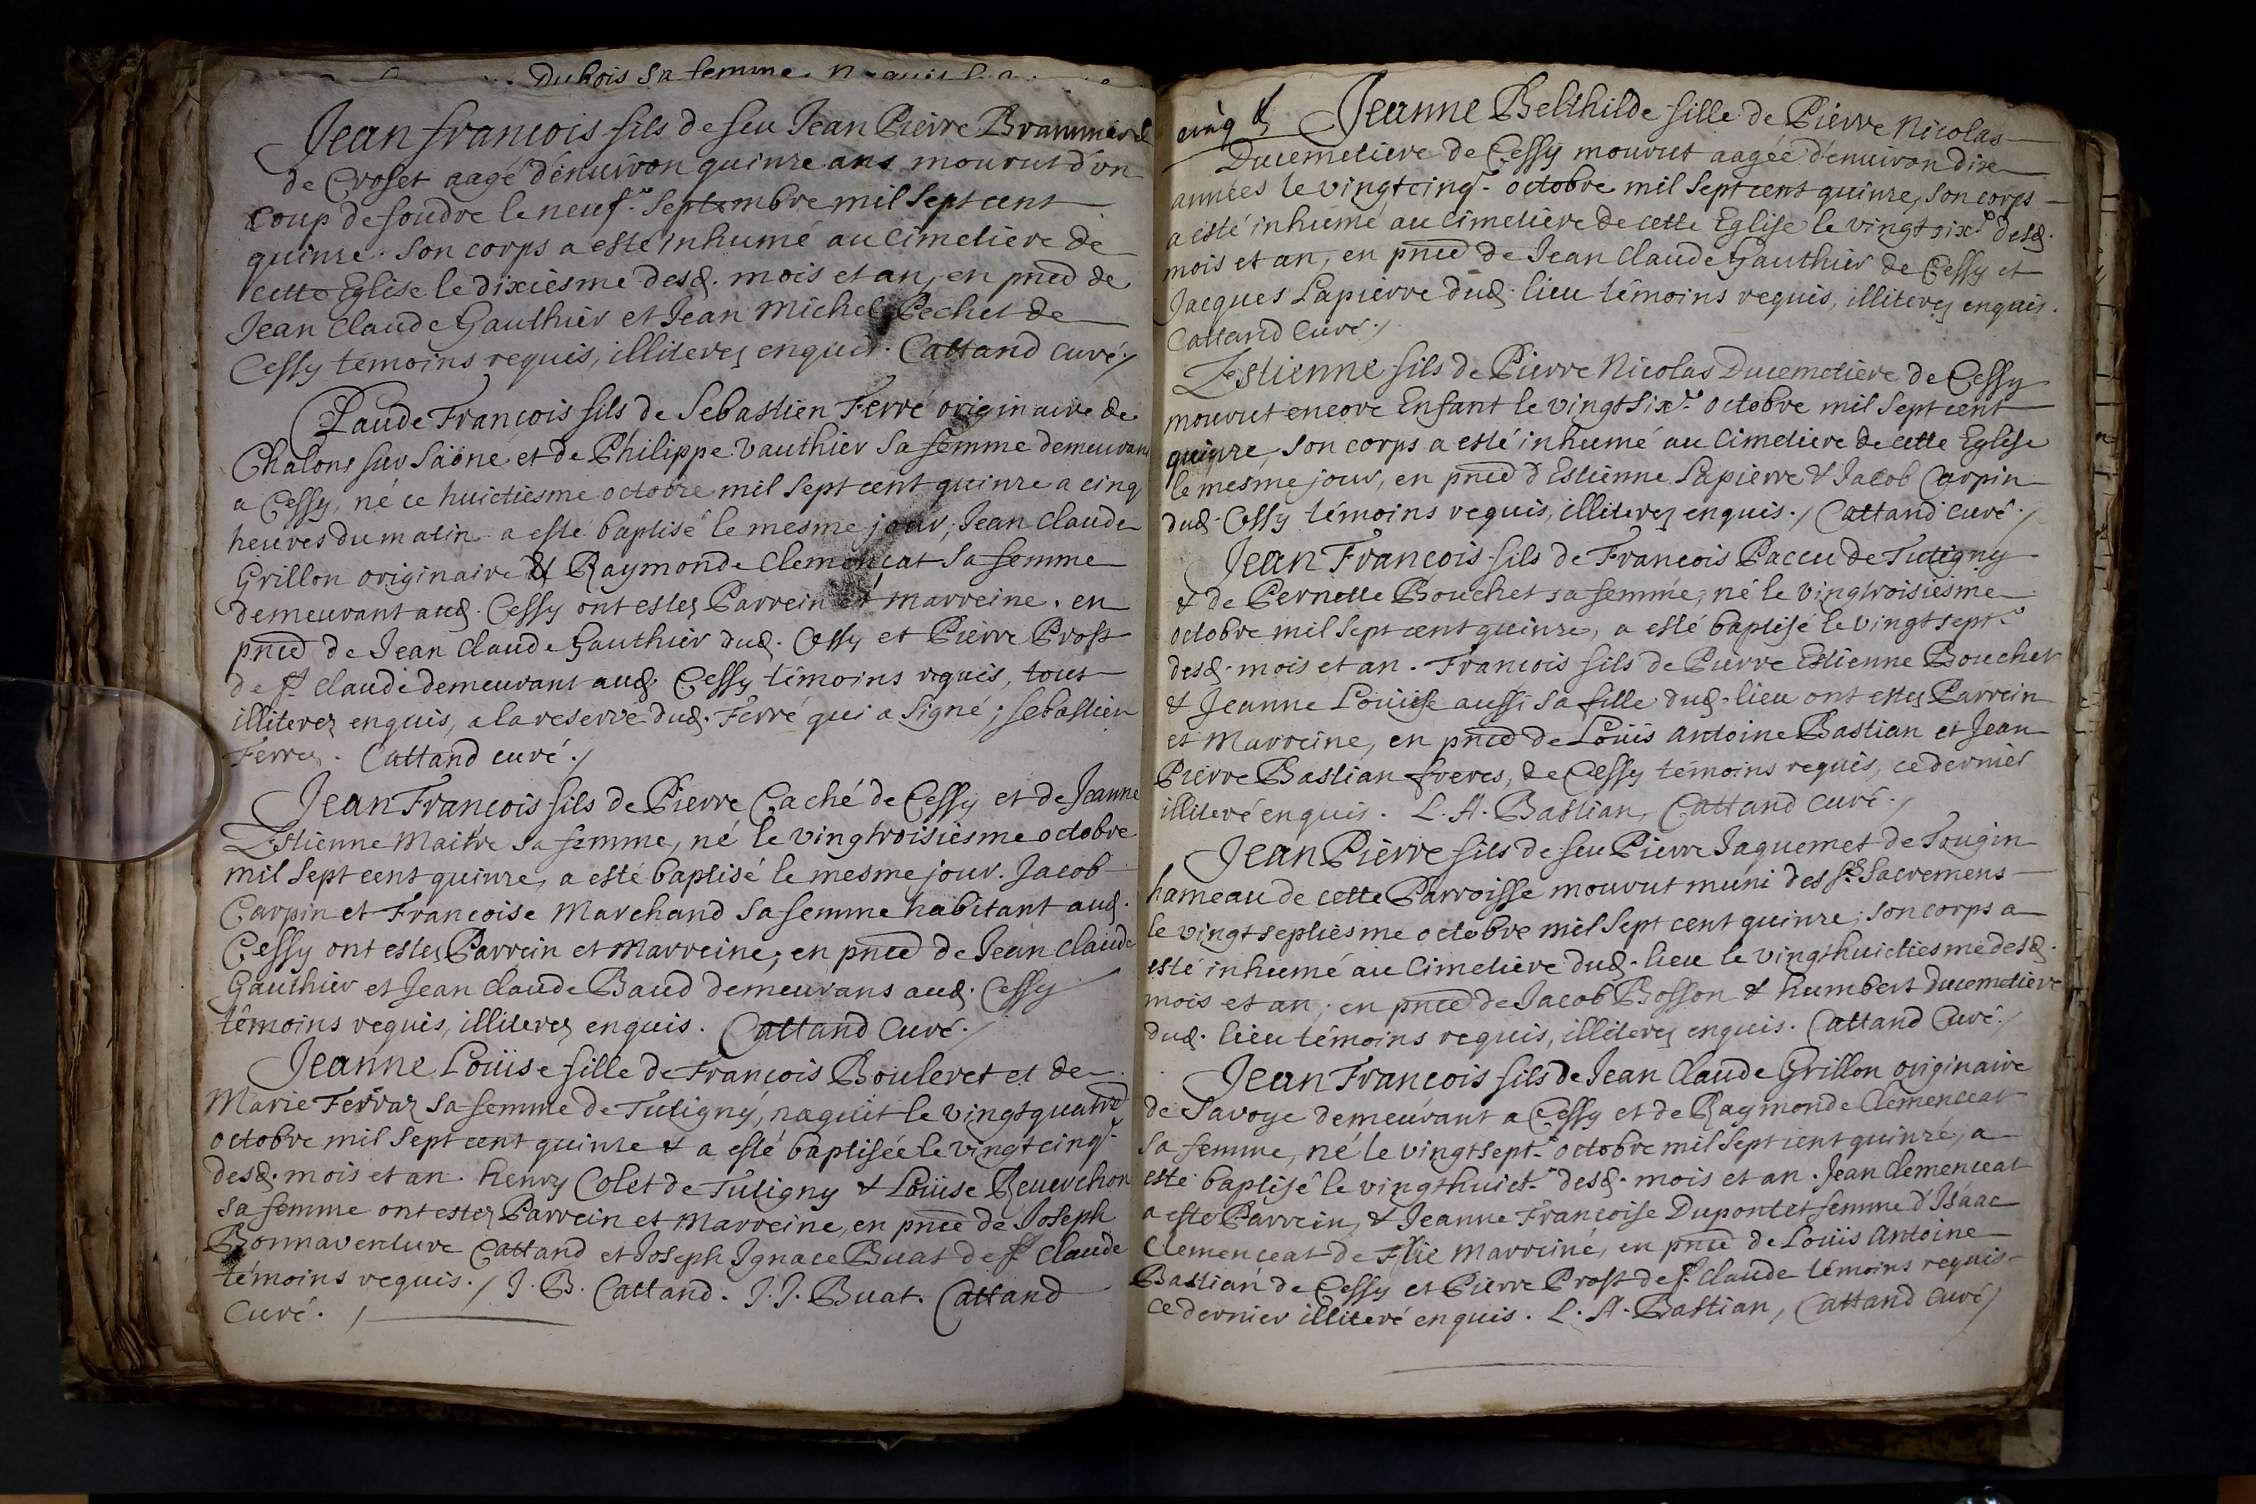 Dubois sa femme
Jean francois fils de feu Jean Pierre
de Croset aagé d'environ quinze ans mourut d'vn
coup de foudre le neuf.e Septembre mil Sept cent
quinze. Son corps a esté inhumé au Cimetiere de
cette Eglise le dixiesme desd. mois et an, en pnce de
Jean Claude Gauthier et Jean Michel Pechet de
Cessy témoins requis, illiterez enquis. Cattand curé./
Claude François fils de Sebastien Ferré originaire de
Chalons sur Saöne et de Philippe Vauthier sa femme demeurans
a Cessy, né ce huictiesme octobre mil Sept cent quinze a cinq
heures du matin a esté baptisé le mesme jour, Jean Claude
Grillon originaire & Raymonde Clemençat sa femme
demeurant aud. Cessy ont estez Parrein et Marreine. en
pnce de Jean Claude Gauthier dud. Cessy et Pierre Prost
de St Claude demeurant aud. Cessy témoins requis, tous
illiterez enquis, a la reserve dud. Ferré qui a Signé ; Sebastien
Ferrez. Cattand curé./
Jean François fils de Pierre Caché de Cessy et de Jeanne
Estienne Maitre sa femme, né le vingtroisiesme octobre
mil Sept cent quinze, a esté baptisé le mesme jour. Jacob
Carpin et Francoise Marchand Sa femme habitant aud.
Cessy ont estez Parrein et Marreine, en pnce de Jean Claude
Gauthier et Jean Claude Baud demeurans aud. Cessy
témoins requis, illiterez enquis. Cattand Curé./
Jeanne Loüise fille de François Bouleret et de
Marie Ferraz sa femme de Tutigny, naquit le vingtquatre
octobre mil Sept cent quinze & a esté baptisée le vingtcinq.e
desd. mois et an. henry Colet de Tutigny & Loüise Reverchon
sa femme ont estez Parrein et Marreine, en pnce de Joseph
Bonnaventure Cattand et Joseph Ignace Buat de St Claude
témoins requis./ J. B. Cattand. J. J. Buat. Cattand
Curé./
cinq
Jeanne Belthilde fille de Pierre Nicolas
Ducemetiere de Cessy mourut aagée d'environ dix
années le vingtcinq.e octobre mil Sept cent quinze, son corps
a esté inhumé au Cimetiere de cette Eglise le vingtsix.e desd.
mois et an, en pnce de Jean Claude Gauthier de Cessy et
Jacques Lapierre dud. lieu témoins requis, illiterez enquis.
Cattand Curé./
Estienne fils de Pierre Nicolas Ducemetiere de Cessy
mourut encore Enfant le vingtsix.e octobre mil Sept cent
quinze, Son corps a esté inhumé au Cimetiere de cette Eglise
le mesme jour, en pnce d'Estienne Lapierre & Jacob Carpin
dud. Cessy témoins requis, illiterez enquis./ Cattand Curé./
Jean François fils de François Paccu de Tutigny
& de Pernette Bouchet sa femme, né le vingtroisiesme
octobre mil Sept cent quinze, a esté baptisé le vingtsept.e
desd. mois et an. François fils de Pierre Estienne Bouchet
& Jeanne Loüise aussi sa fille dud. lieu ont estez Parrein
et Marreine, en pnce de Loüis Antoine Bastian et Jean
Pierre Bastian freres, de Cessy témoins requis, ce dernier
illiteré enquis. L. A. Bastian, Cattand Curé./
Jean Pierre fils de feu Pierre Jaquemet de Tougin
hameau de cette Parroisse mourut muni des Sts Sacremens
le vingtseptiesme octobre mil Sept cent quinze. Son corps a
esté inhumé au Cimetiere dud. lieu le vingthuictiesme desd.
mois et an, en pnce de Jacob Bosson & humbert Ducemetiere
dud. lieu témoins requis, illiterez enquis. Cattand Curé./
Jean François fils de Jean Claude Grillon originaire
de Savoye demeurant a Cessy et de Raymonde Clemenceat
sa femme, né le vingtsept.e octobre mil Sept cent quinze, a
esté baptisé le vingthuict.e desd. mois et an. Jean Clemenceat
a esté Parrein, & Jeanne Françoise Dupontet femme d'Isaac
Clemenceat de Marreine, en pnce de Loüis Antoine
Bastian de Cessy et Pierre Prost de St Claude témoins requis
ce dernier illiteré enquis. L. A. Bastian, Cattand Curé/